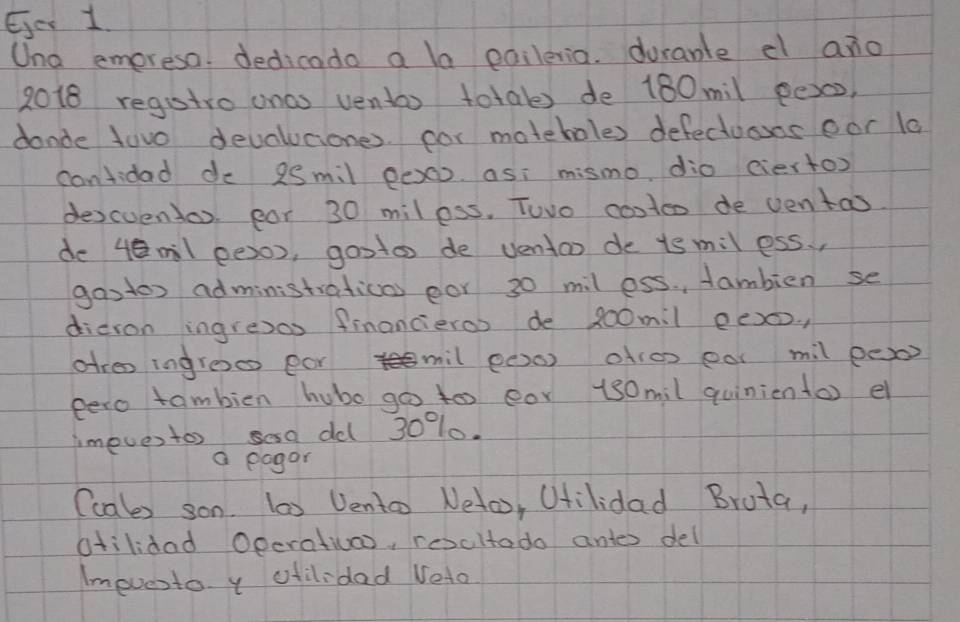 Ejer 1.
Una empresa. dedicada a la paileria. durante el año
2018 registro unas ventas totales de 180 mil pesos,
donde tuvo devoluciones por materiales defectuosos por la
cantidad de 25 mil pesos. asi mismo. dio ciertos
descuentos. por 30 mil pss. Tuvo costos de ventas
de 40 mil pesos, gastos de ventas de 15 mil pss.,
gastos administrativos por 30 mil pss., tambien se
dieron ingresos financieros de 200 mil pesos.,
otros ingresos por mil pesos otros por mil pesos
pero tambien hubo gastos por 150 mil quinientos el
impuestos sera del 30%.
a pagar
Cuales son. las Ventas Netas, Utilidad Bruta,
Utilidad Operativas, resultado antes del
Impuesto. y utilidad Neta